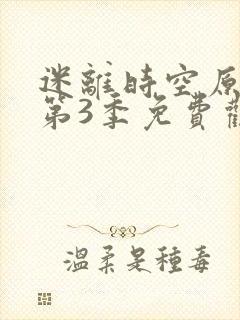 迷離時空原
第3季免費觀
溫柔是種毒